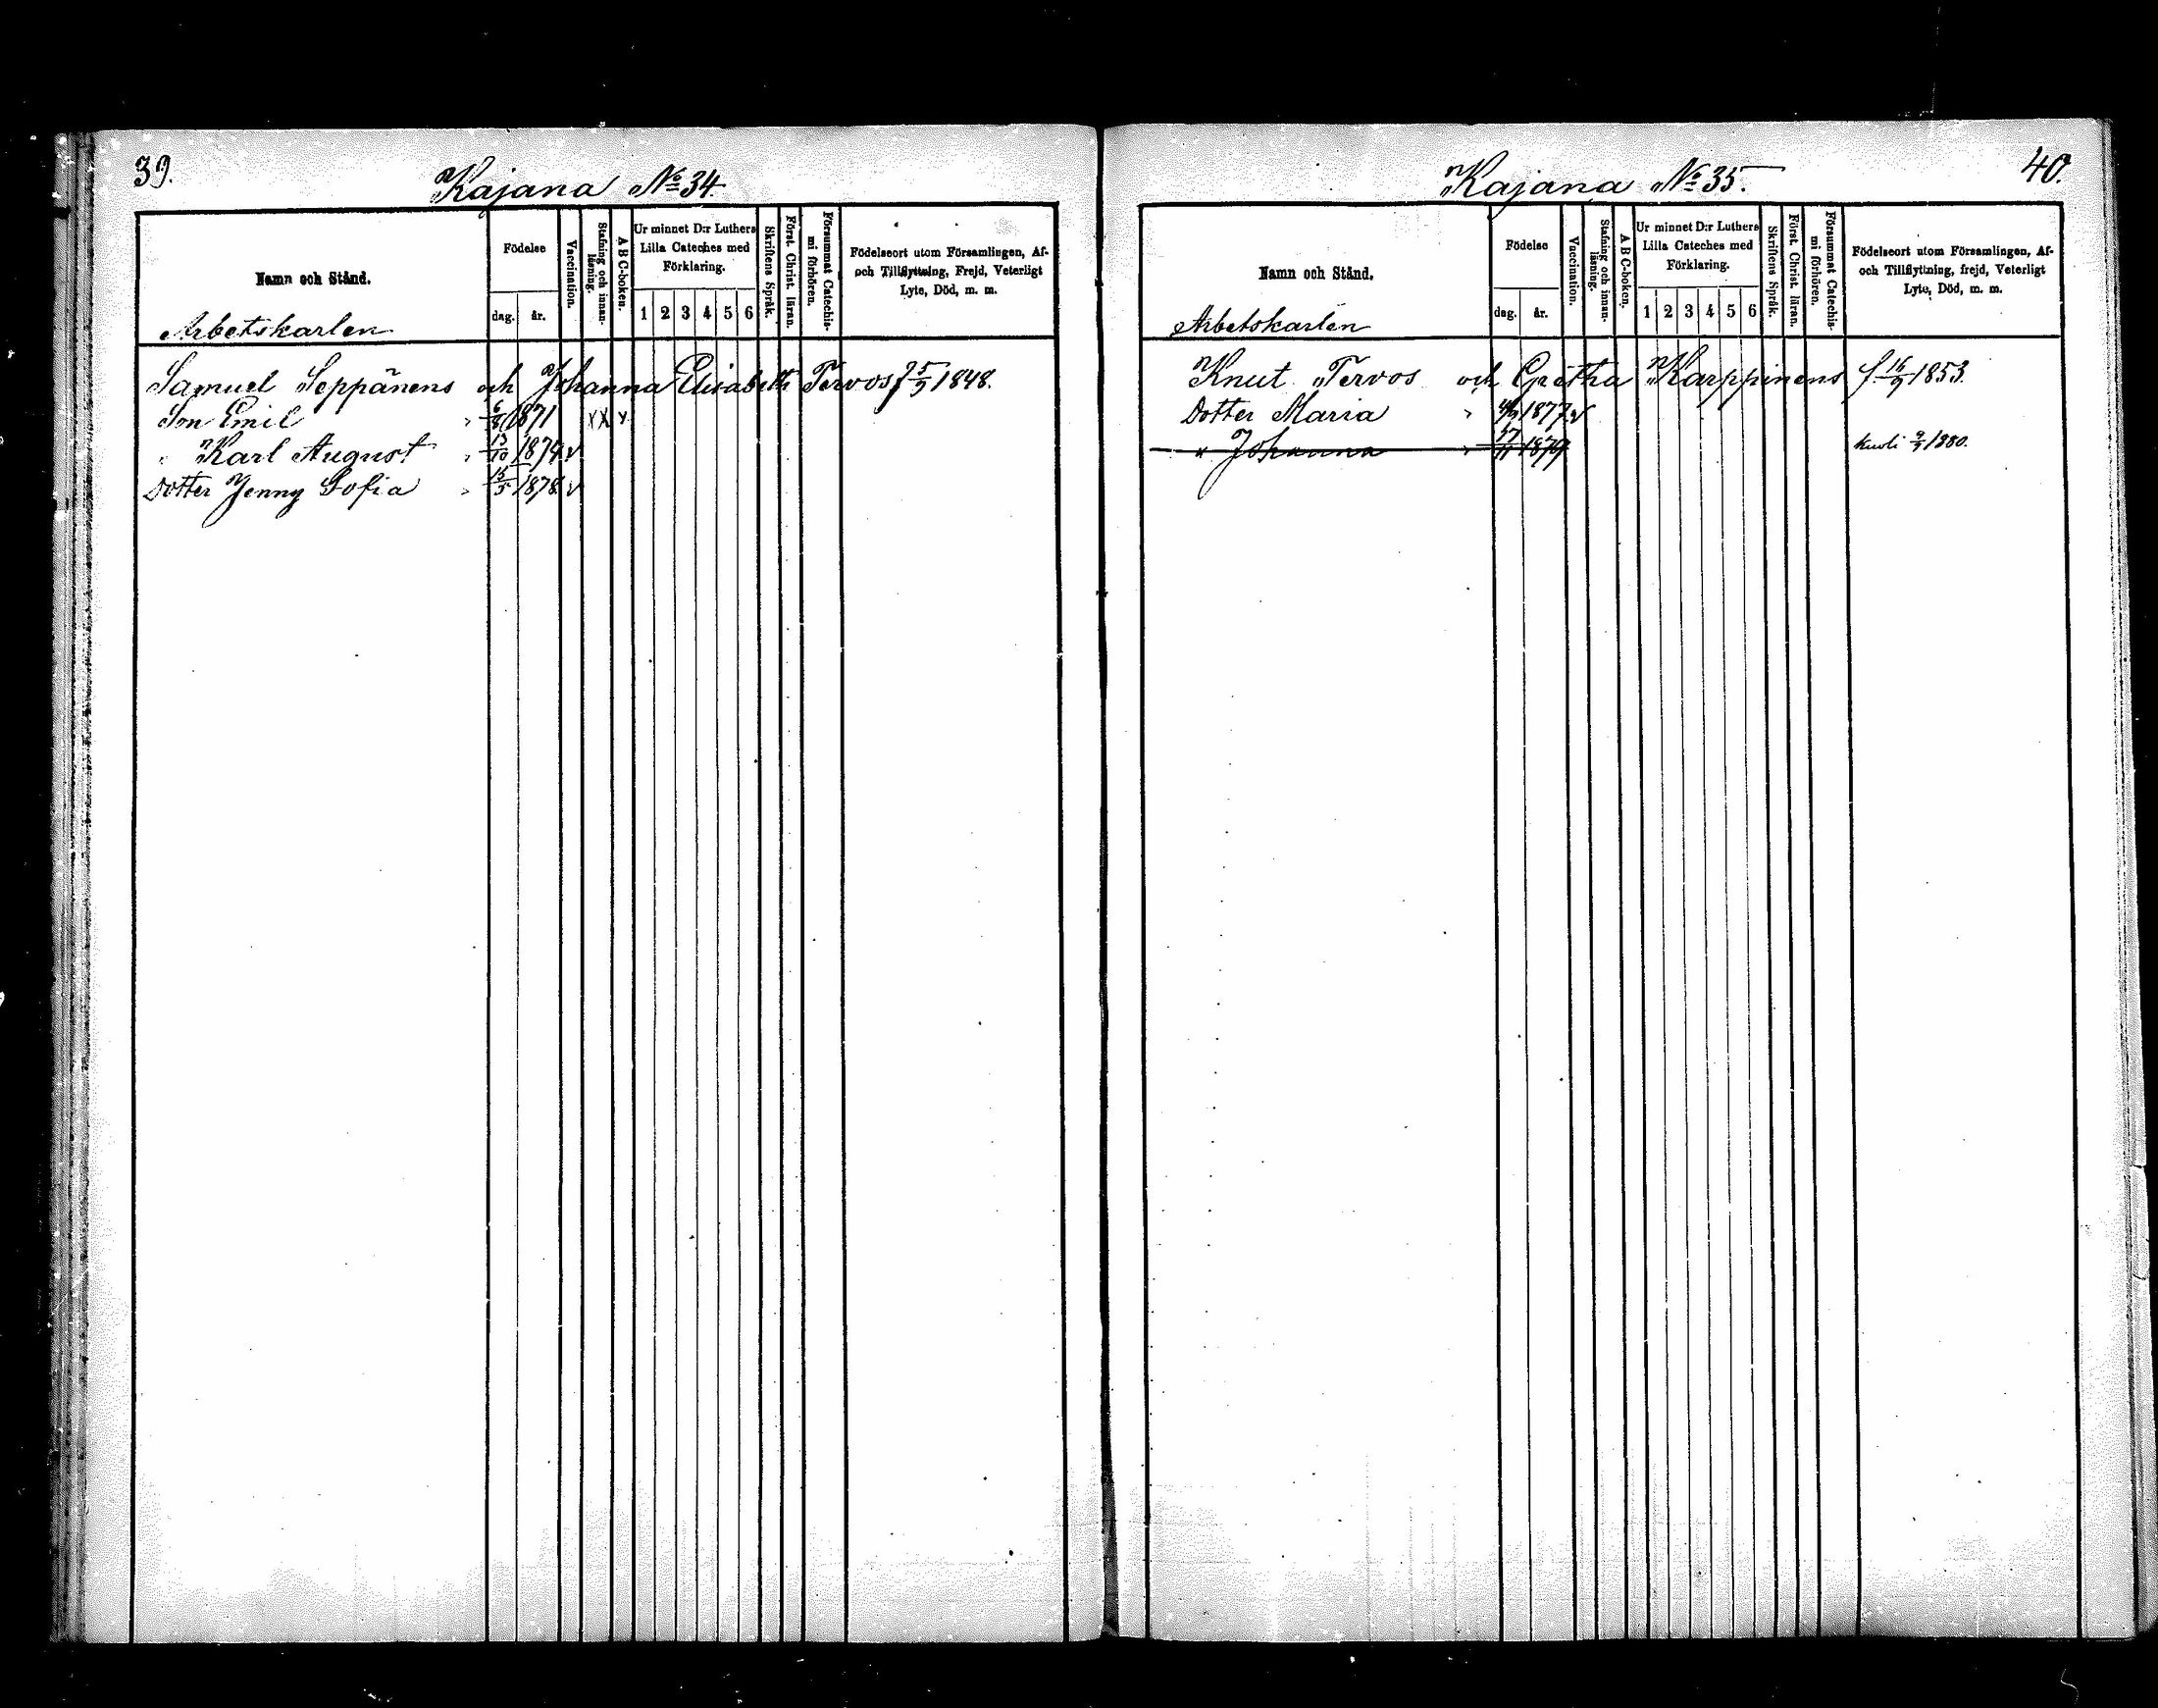 39.
Kajana No 34.
Namn och Stånd.
Födelse
dag. år.
Vaccination.
Stafning och innanläsning.
A B C-boken.
Ur minnet D:r Luthers Lilla Cateches med Förklaring.
1 2 3 4 5 6
Skriftens Språk.
Först. Christ. läran.
Försummat Catechismi förhören.
Födelseort utom Församlingen, Af-
och Tillflyttning, Frejd, Veterligt
Lyte, Död, m. m.
Arbetskarlen
Samuel Seppänens och Johanna Elisabeth Tervos f 5/9 1848.
Son Emil 6/8 1871 XX x
" Karl August 13/10 1874 v
Dotter Jenny Sofia 15/5 1878 v
40.
Kajana No 35.
Namn och Stånd.
Födelse
dag. år.
Vaccination.
Stafning och innanläsning.
A B C-boken.
Ur minnet D:r Luthers Lilla Cateches med Förklaring.
1 2 3 4 5 6
Skriftens Språk.
Först. Christ. läran.
Försummat Catechismi förhören.
Födelseort utom Församlingen, Af-
och Tillflyttning, frejd, Veterligt
Lyte, Död, m. m.
Arbetskarlen
Knut Tervos och Gretha Karppinens f. 16/9 1853.
Dotter Maria 1877 v
" Johanna 17/11 1879 kuoli 1880.